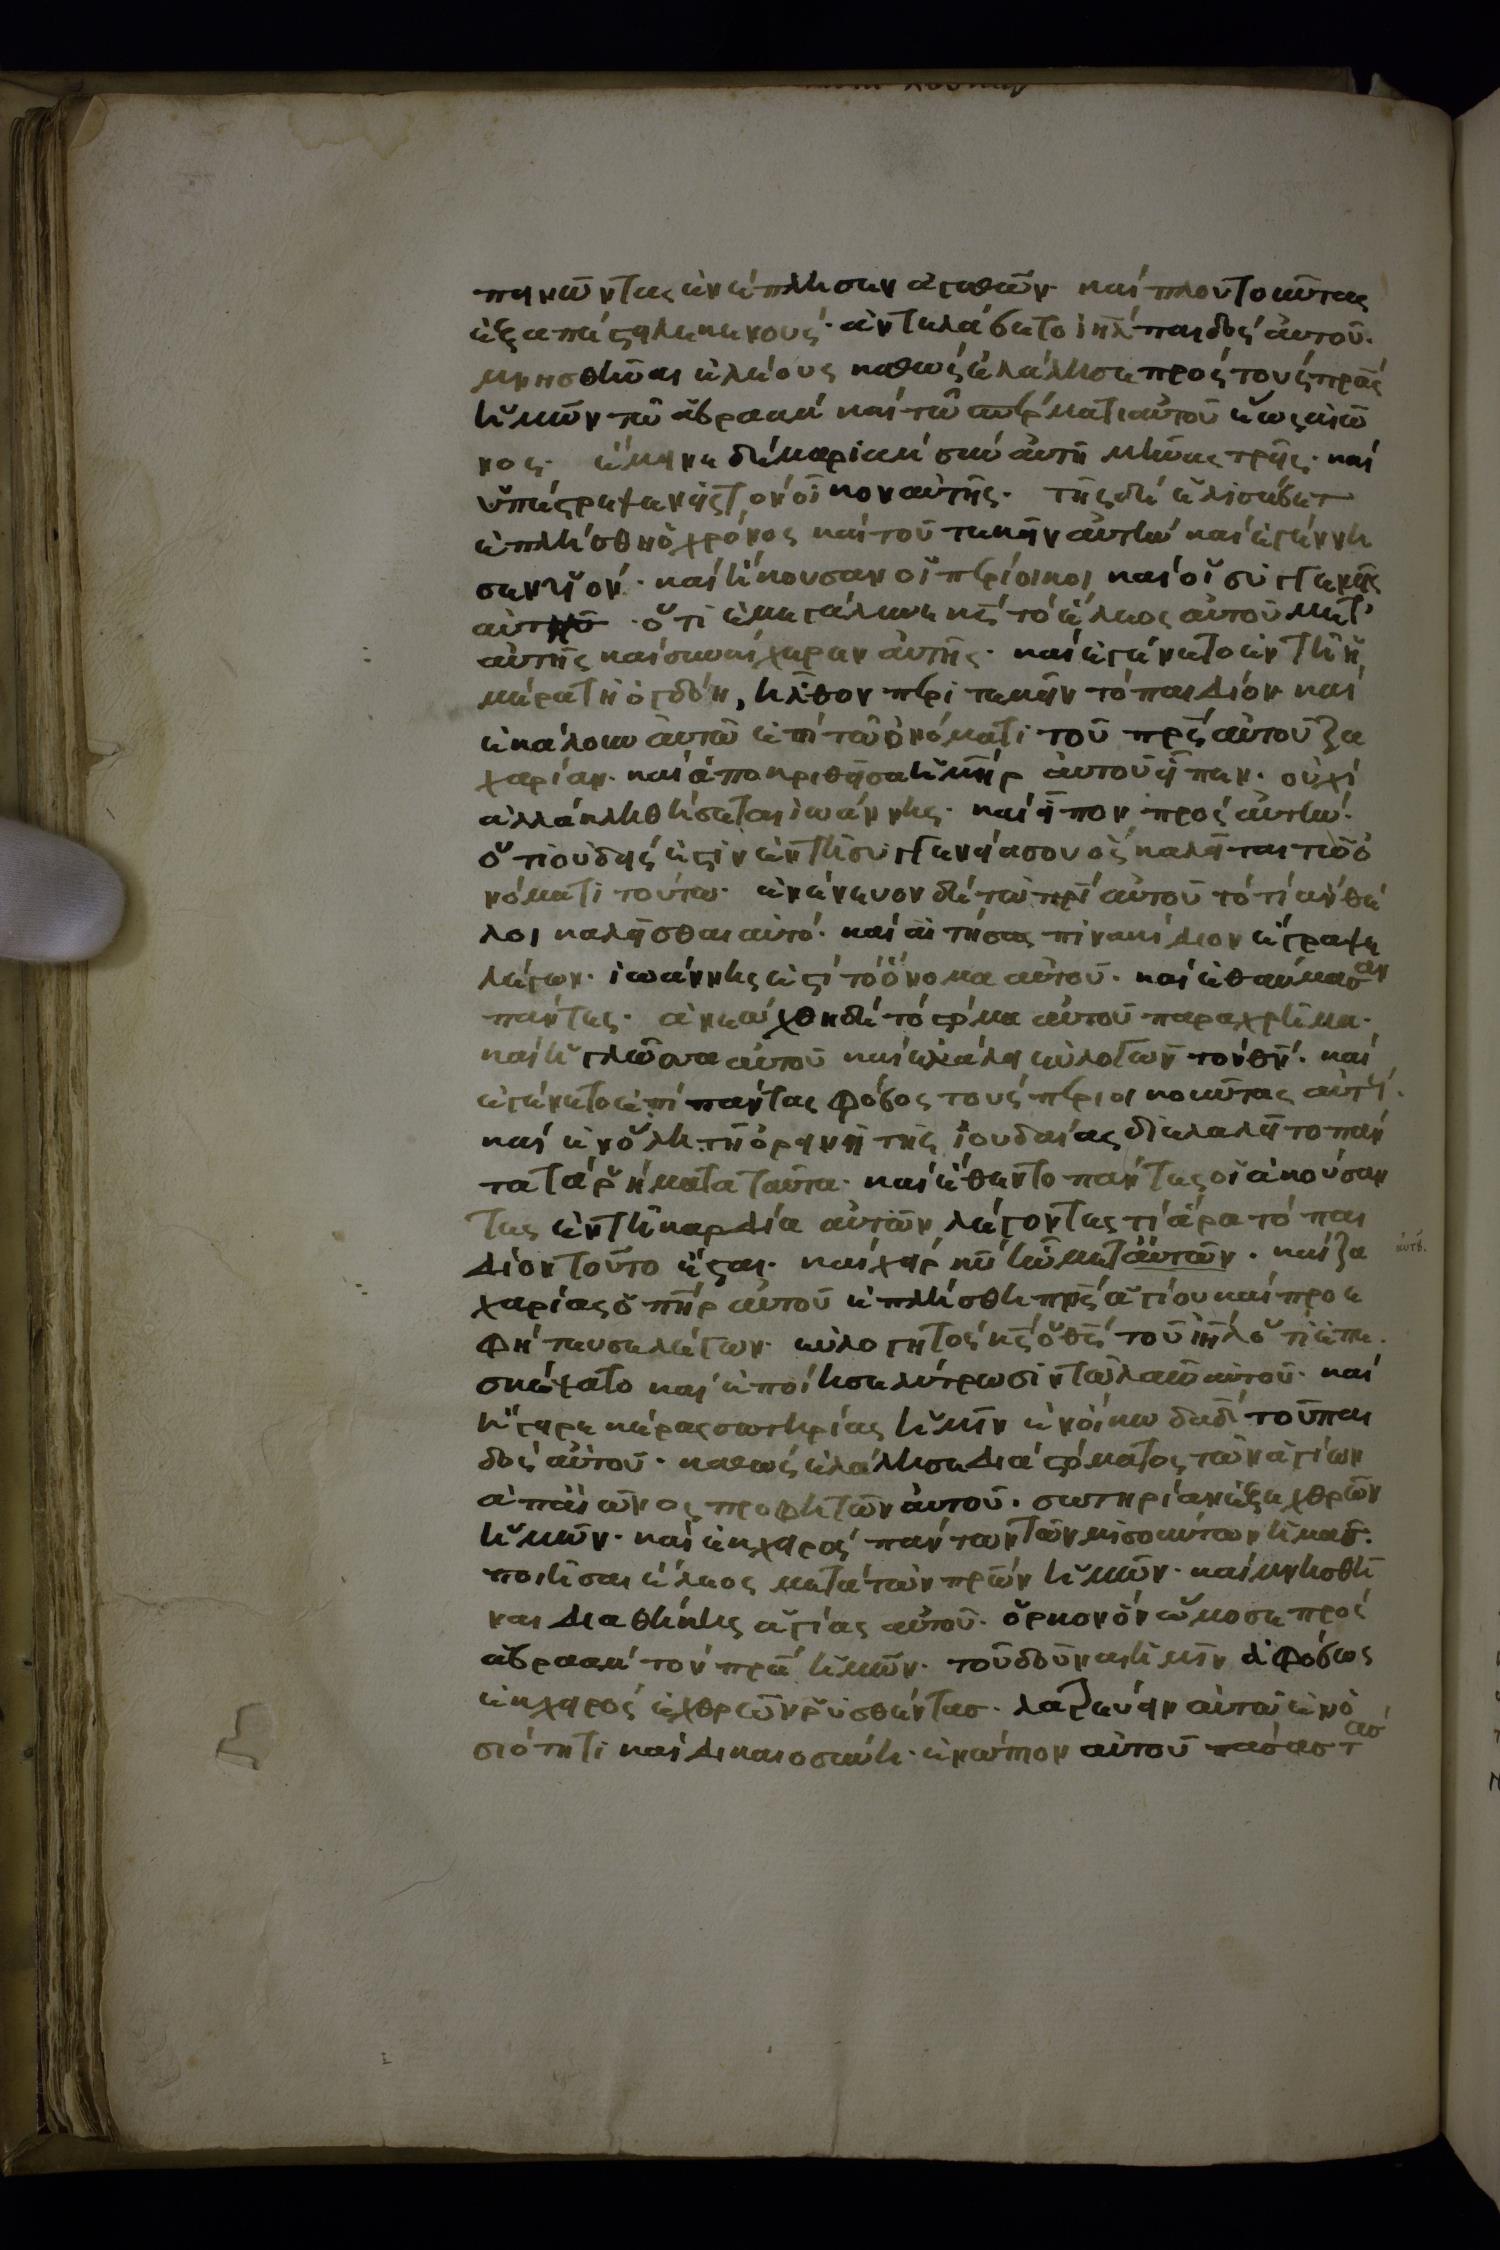 πεινῶντας ἐνέπλησεν ἀγαθῶν· καὶ πλουτοῦντας
ἐξαπέστειλε κενούς· ἀντελάβετο ἰηλ παιδὸς αὐτοῦ·
μνησθῆναι ἐλέους καθὼς ἐλάλησε πρὸς τοὺς πρας
ἡμῶν τῶ ἀβραὰμ καὶ τῶ σπέρματι αὐτοῦ ἕως αἰῶ
νος· ἔμεινε δὲ μαριὰμ σὺν αὐτῆ μῆνας τρεῖς· καὶ
ὑπέστρεψεν εἰς τὸν οἶκον αὐτῆς· τῆς δὲ ἐλισάβετ
ἐπλήσθη ὁ χρόνος καὶ τοῦ τεκεῖν αὐτὴν καὶ ἐγέννη
σεν υἱόν· καὶ ἤκουσαν οἱ περίοικοι καὶ οἱ συγγενεῖς
αὐτῆς · ὅτι ἐμεγάλυνε κς τὸ ἔλεος αὐτοῦ μετ'
αὐτῆς καὶ συνέχαιρον αὐτῆς· καὶ ἐγένετο ἐν τῆ ἡ
μέρα τῆ ὀγδόη, ἦλθον περιτεμεῖν τὸ παιδίον καὶ
ἐκάλουν αὐτῶ ἐπὶ τῶ ὀνόματι τοῦ πρς αὐτοῦ ζα
χαρίαν· καὶ ἀποκριθεῖσα ἡ μηρ αὐτοῦ εἶπεν· οὐχὶ
ἀλλὰ κληθήσεται ἰωάννης· καὶ εἶπον πρὸς αὐτήν·
ὅτι οὐδείς ἐστιν ἐν τῆ συγγενεία σου ὃς καλεῖται τῶ ὀ
νόματι τούτω· ἐνένευον δὲ τῶ πρι αὐτοῦ τὸ τί ἂν θέ
λοι καλεῖσθαι αὐτό· καὶ αἰτήσας πινακίδιον ἔγραψε
λέγων· ἰωάννης ἐστὶ τὸ ὄνομα αὐτοῦ· καὶ ἐθαύμασαν
πάντες· ἀνεώχθη δὲ τὸ στόμα αὐτοῦ παραχρῆμα·
καὶ ἡ γλῶσσα αὐτοῦ καὶ ἐλάλει εὐλογῶν τὸν θν· καὶ
ἐγένετο ἐπὶ πάντας φόβος τοὺς περιοικοῦντας αὐτ·
καὶ ἐν ὅλη τῆ ὀρεινῆ τῆς ἰουδαίας διελαλεῖτο πάν
τα τὰ ῥήματα ταῦτα· καὶ ἔθεντο πάντες οἱ ἀκούσαν
τες ἐν τῆ καρδία αὐτῶν λέγοντες τί ἄρα τὸ παι
δίον τοῦτο ἔσται· καὶ χεὶρ κυ ἦν μετ' αὐτῶν· καὶ ζα
χαρίας ὁ πηρ αὐτοῦ ἐπλήσθη πνς ἁγίου καὶ προε
φήτευσε λέγων· εὐλογητὸς κς ὁ θς τοῦ ἰηλ ὅτι ἐπε
σκέψατο καὶ ἐποίησε λύτρωσιν τῶ λαῶ αὐτοῦ· καὶ
ἤγειρε κέρας σωτηρίας ἡμῖν ἐν οἴκω δαδ τοῦ παι
δὸς αὐτοῦ· καθὼς ἐλάλησε διὰ στόματος τῶν ἁγίων
ἀπ' αἰῶνος προφητῶν αὐτοῦ· σωτηρίαν ἐξ ἐχθρῶν
ἡμῶν· καὶ ἐκ χειρὸς πάντων τῶν μισούντων ἡμᾶς·
ποιῆσαι ἔλεος μετὰ τῶν πρων ἡμῶν· καὶ μνησθῆ
ναι διαθήκης ἁγίας αὐτοῦ· ὅρκον ὃν ὤμοσε πρὸς
ἀβραὰμ τὸν πρα ἡμῶν· τοῦ δοῦναι ἡμῖν ἀφόβως
ἐκ χειρὸς ἐχθρῶν ῥυσθέντας· λατρεύειν αὐτῶ ἐν ὁ
σιότητι καὶ δικαιοσύνη· ἐνώπιον αὐτοῦ πάσας τὰς